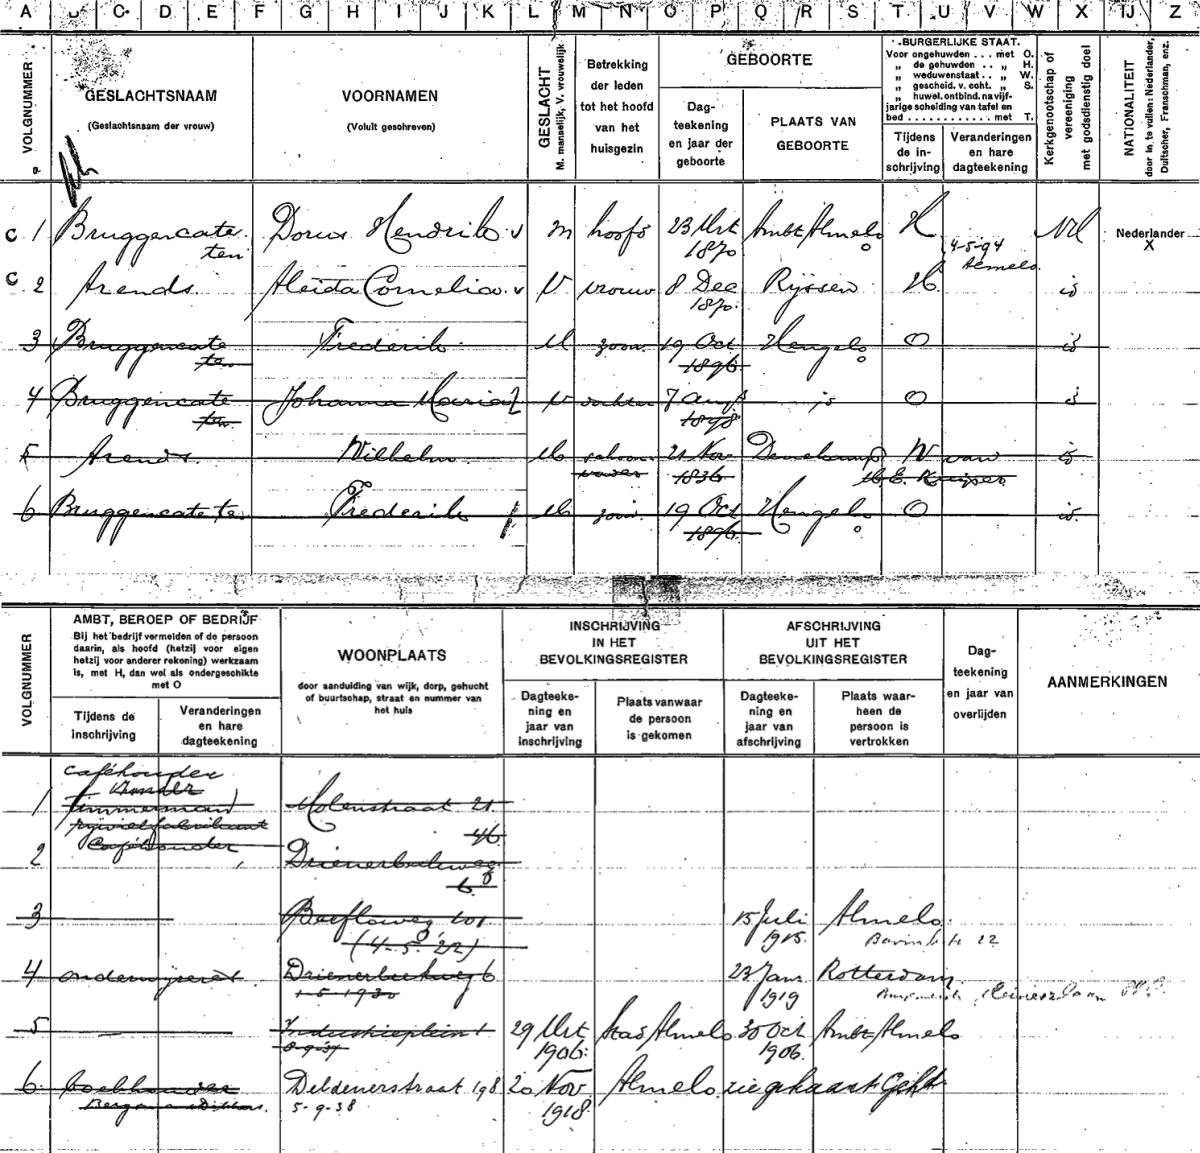 A B C D E F G H I J K L M N O P Q R S T U V W X IJ Z
VOLGNUMMER
GESLACHTSNAAM
(Geslachtsnaam der vrouw)
VOORNAMEN
(Voluit geschreven)
GESLACHT
M. mannelijk, V. vrouwelijk
Betrekking
der leden
tot het hoofd
van het
huisgezin
GEBOORTE
Dag-
teekening
en jaar der
geboorte
PLAATS VAN
GEBOORTE
BURGERLIJKE STAAT.
Voor ongehuwden . . . met O.
„ de gehuwden . . „ H.
„ weduwenstaat . . „ W.
„ gescheid. v. echt. „ S.
„ huwel. ontbind. na vijf-
jarige scheiding van tafel en
bed . . . . . . . . . . . . met T.
Tijdens
de in-
schrijving
Veranderingen
en hare
dagteekening
Kerkgenootschap of
vereeniging
met godsdienstig doel
NATIONALITEIT
door in te vullen: Nederlander,
Duitscher, Franschman, enz.
c 1 Bruggencate Dorus Hendrik v m hoofd 23 Mrt Ambt Almelo H NH Nederlander
ten 1870 4-5-94 X
Almelo
c 2 Arends Aleida Cornelia v V vrouw 8 Dec Rijssen H id
1870
3 Bruggencate Frederik M zoon 19 Oct Hengelo O id
ten 1896
4 Bruggencate Johanna Maria V dochter 7 Aug id O id
ten 1898
5 Arends Wilhelm M schoon 21 Nov Denekamp W van id
vader 1836 E. Kuiper
6 Bruggencate ten Frederik M zoon 19 Oct Hengelo O id
1896
VOLGNUMMER
AMBT, BEROEP OF BEDRIJF
Bij het bedrijf vermelden of de persoon
daarin, als hoofd (hetzij voor eigen
hetzij voor anderer rekening) werkzaam
is, met H, dan wel als ondergeschikte
met O
Tijdens de
inschrijving
Veranderingen
en hare
dagteekening
WOONPLAATS
door aanduiding van wijk, dorp, gehucht
of buurtschap, straat en nummer van
het huis
INSCHRIJVING
IN HET
BEVOLKINGSREGISTER
Dagteeke-
ning en
jaar van
inschrijving
Plaats vanwaar
de persoon
is gekomen
AFSCHRIJVING
UIT HET
BEVOLKINGSREGISTER
Dagteeke-
ning en
jaar van
afschrijving
Plaats waar-
heen de
persoon is
vertrokken
Dag-
teekening
en jaar van
overlijden
AANMERKINGEN
caféhouder
1 timmerman Molenstraat 21
rijwielfabrikant 46
2 Caféhouder Drienerbeekweg
6
3 Beefloweg 101 15 Juli Almelo
(4-5-'22) 1915 22
4 onderwijzeres Drienerbeekweg 6 23 Jan Rotterdam
1-5-1930 1919
5 Industrieplein 1 29 Mrt Stad Almelo 30 Oct Ambt Almelo
8-9-34 1906 1906
6 boekhouder Deldenerstraat 198 20 Nov Almelo zie gekaart Geh
5-9-38 1918